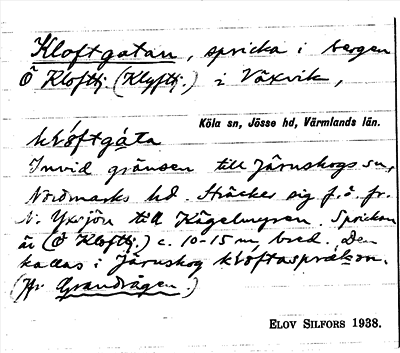 Kloftgatan, spricka i bergen
Ö Klofttj. (Klyfttj.) i Växvik,
Köla sn, Jösse hd, Värmlands län.
klóftgáta
Invid gränsen till Järnskogs sn,
Nordmarks hd. Sträcker sig f.ö. fr.
N. Yxsjön till Kågelmyren. Sprickan
är (Ö Klofttj.) c. 10-15 m, bred. Den
kallas i Järnskog
(Jfr Grandvägen.)
ELOV SILFORS 1938.